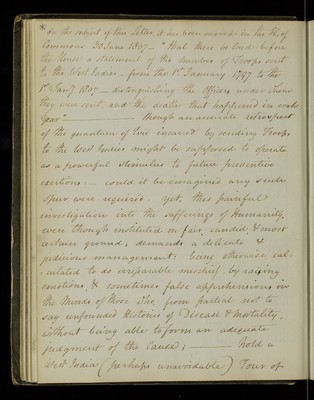 * On the subject of this Letter, it has been moved in the H. of
Commons 30 June 1807 — "That there be laid before
the House a statement of the number of Troops sent
to the West Indies — from the 1st January 1797 to the
1st Jany 1807 — distinguishing the Officers under whom
they were sent, and the deaths that happened in each
Year" — though an accurate retrospect
of the quantum of Evil incurred by sending Troops
to the West Indies might be supposed to operate
as a powerful stimulus to future preventive
exertions — could it be imagined any such
spur were required. Yet, this painful
investigation into the sufferings of Humanity,
even though instituted on fair, candid, & most
certain ground, demands a delicate &
judicious management; being otherwise cal-
culated to do irreparable mischief by raising
emotions, & sometimes false apprehensions in
the Minds of those who from partial not to
say unfounded Histories of Disease & Mortality,
without being able to form an adequate
judgment of the Cause; — hold a
West India (perhaps unavoidable) Tour of